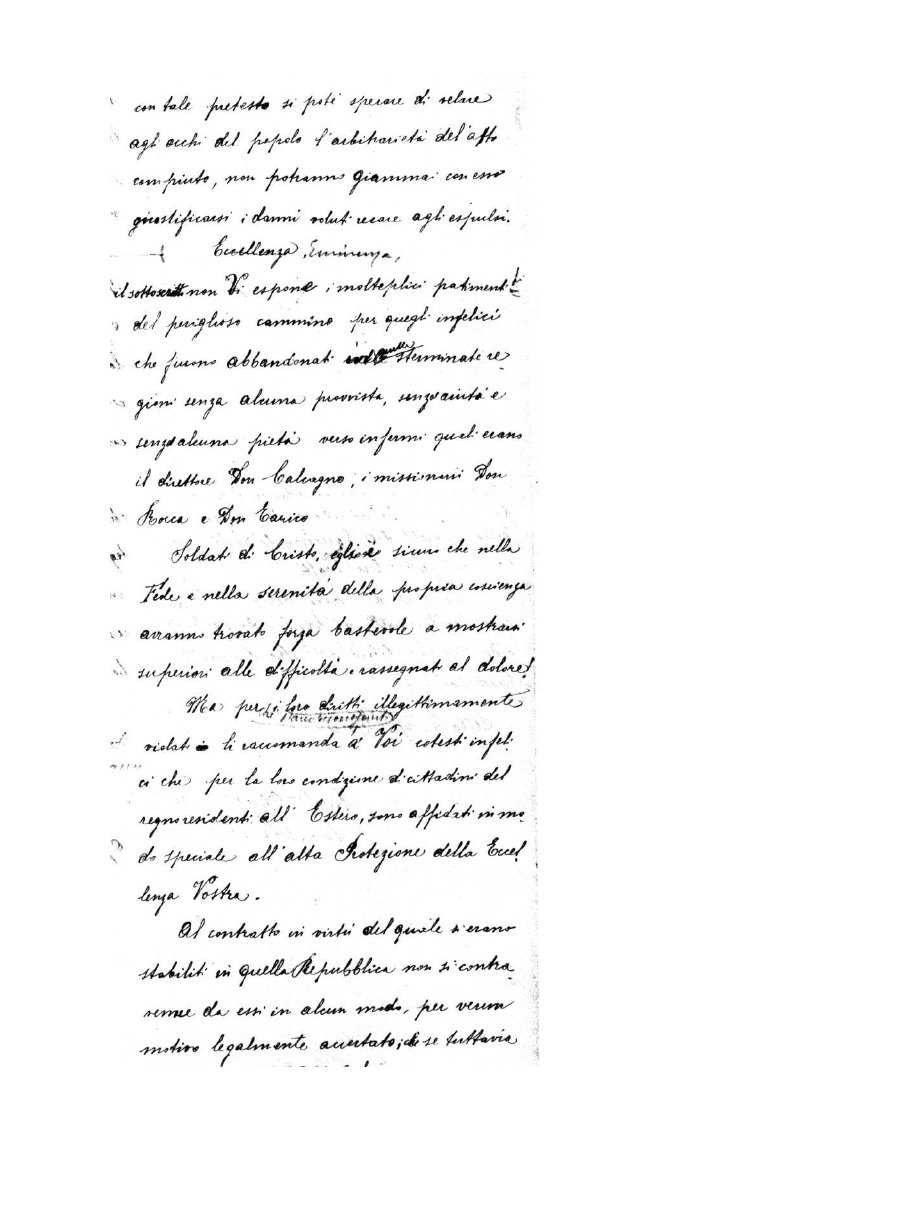 con tale pretesto si poté sperare di velare
agli occhi del popolo l'arbitrarietà del'atto
compiuto, non potranno giammai con esso
giustificarsi i danni voluti recare agli espulsi.
Eccellenza, Eminenza,
il sottoscritto non Vi espone i molteplici patimenti
del periglioso cammino per quegli infelici
che furono abbandonati nelle sterminate re
gioni senza alcuna provvista, senza aiuta e
senza alcuna pietà verso infermi quali erano
il direttore Don Calcagno, i missionarii Don
Rocca e Don Enrico
Soldati di Cristo, egli è sicuro che nella
Fede e nella serenità della propria coscienza
avranno trovato forza bastevole a mostrarsi
superiori alle difficoltà e rassegnati al dolore!
Ma per i loro diritti illegittimamente
violati li raccomanda a Voi cotesti infeli
ci che per la loro condizione di cittadini del
regno residenti all'Estero, sono affidati in mo
do speciale all'alta Protezione della Eccel
lenza Vostra.
Al contratto in virtù del quale si erano
stabiliti in quella Repubblica non si contra
venne da essi in alcun modo, per verun
motivo legalmente accertato; che se tuttavia